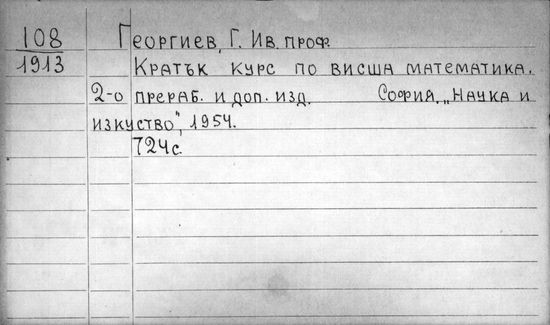 108 Георгиев, Г. Ив. проф.
1913 Кратък курс по висша математика.
2-о прераб. и доп. изд. София, „Наука и
изкуство", 1954.
724 с.